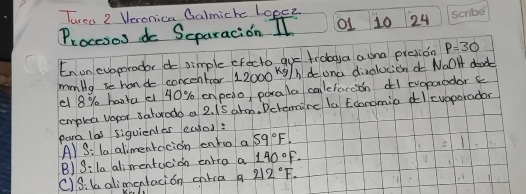 Tarea 2 Veronica Galmiche Lopez.
Procesos de Separación II
01 10 24
scribe
En un evaporador de simple efecto que trabaja a una presión P=30
mmHg se han de concentrar 12000 kg/h de una disolución de NaOH desde
el 8% hasta el 40% en peso, para la calefacción del evaporador se
emplea vapor saturado a 2.15 atm. Determine la Economía del evaporador
para los siguientes casos:
A) Si la alimentación entra a 59°F.
B) Si la alimentación entra a 140°F.
C) Si la alimentación entra a 212°F.